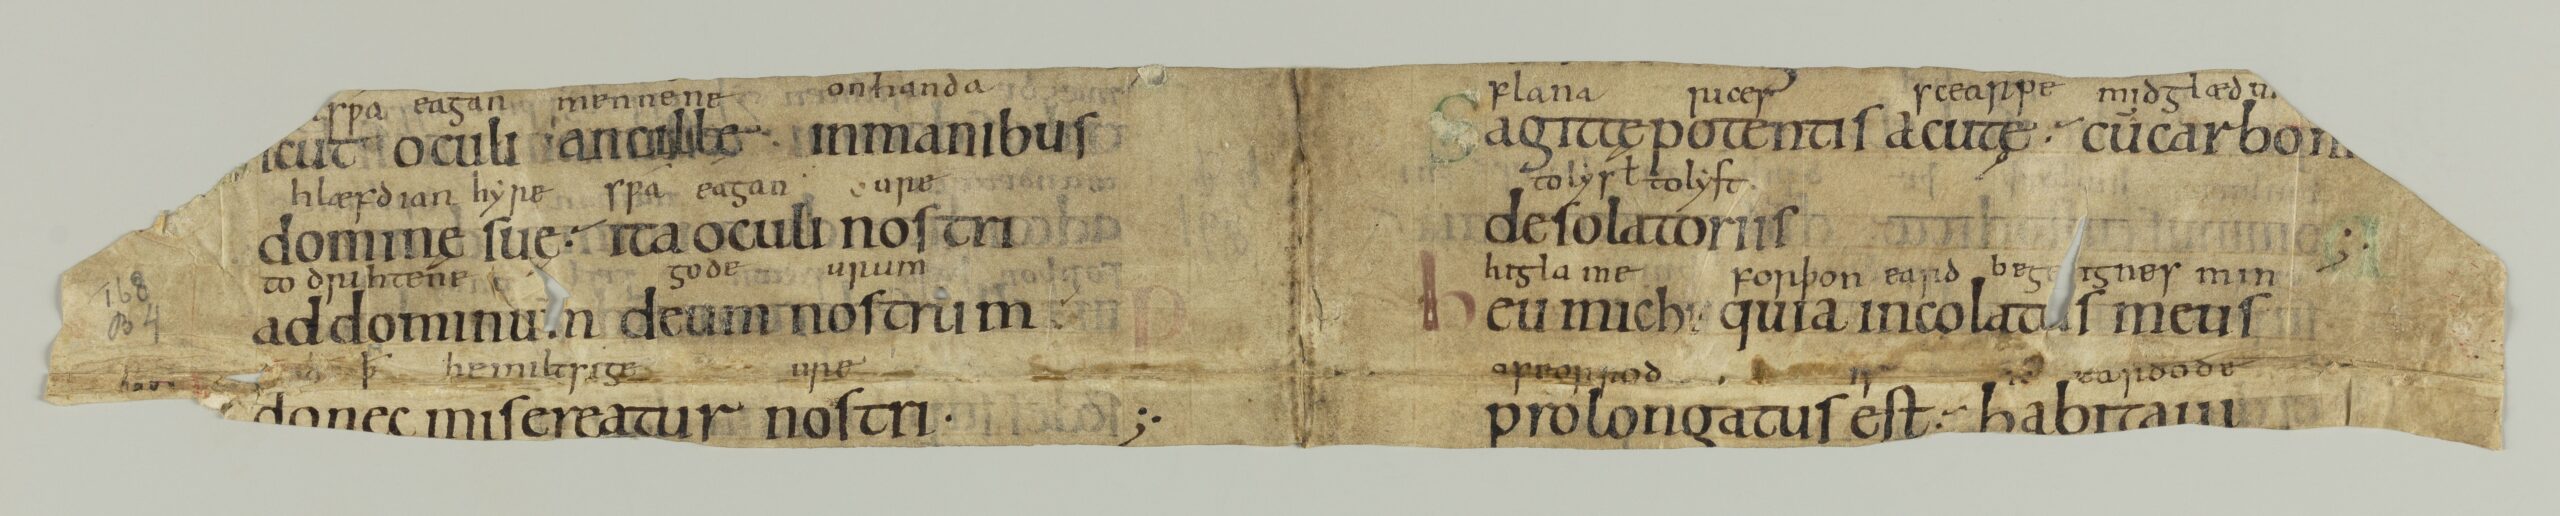 spa eagan mennene onhanda
icut oculi ancille · inmanibus
hlæfdian hyre spa eagan ure
dominę suę :- ita oculi nostri
to drihtene gode urum
ad dominum deum nostrum :
þ hemiltsige ure
donec misereatur nostri · ;·
168
B 4
flana scearpe midglæd
Sagittę potentis acutę :- cū carboni
tolysł tolyst.
desolatoriis ;·
higla me forþon eard min
heu michi quia incolatus meus
afeorrod is eardode
prolongatus est :- habitaui